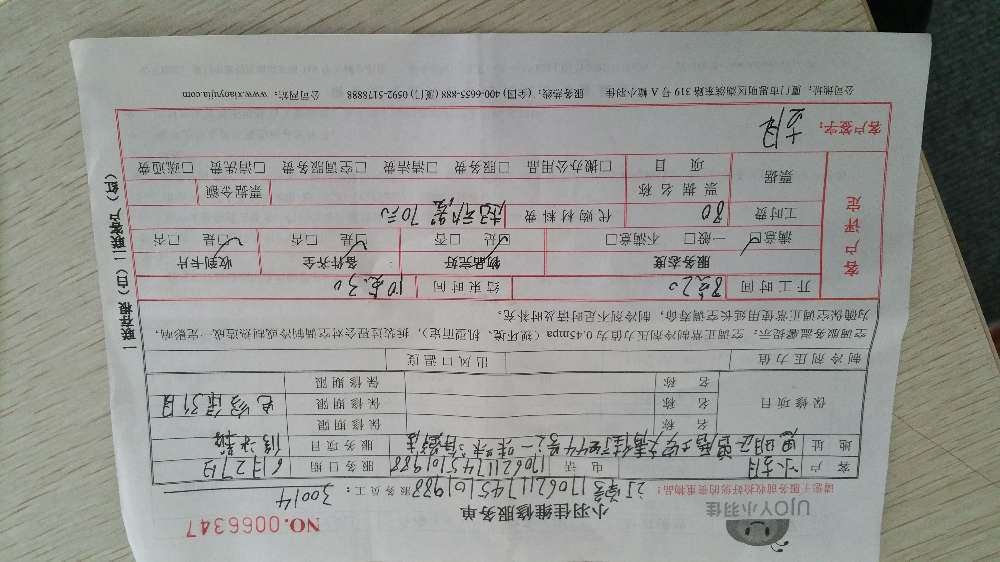 UJOY小羽佳
小羽佳维修服务单
NO.0066347
请您于服务前收捡好您的贵重物品!
1706211745101988
服务员工:
30014
客户
电话
1706211745101988
服务日期
6月27日
地址
服务项目
修冰箱
保修项目
名称
保修期限
名称
保修期限
名称
保修期限
制冷剂压力值
出风口温度
空调服务温馨提示:空调正常制冷剂压力值为0.45mpa(视环境、机型而定),拆装过程会对空调制冷或制热造成一定影响。
为确保空调正常使用延长空调寿命,制冷剂不足时请及时补充。
客户评定
开工时间
8点20
结束时间
10点30
服务态度
物品完好
备件齐全
收到卡片
满意☑ 一般□ 不满意□
是☑ 否□
是☑ 否□
是☑ 否□
工时费
80
代购材料费
起动器70元
票据
票据名称
票据金额
项目
□搬办公用品 □服务费 □清洁费 □空调服务费 □清洗费 □疏通费
客户签字:
公司地址:厦门市思明区湖滨东路319号A幢小羽佳
服务热线:(全国)400-6655-888(厦门)0592-5178888
公司网站:www.xiaoyujia.com
一联存根(白)二联客户(红)